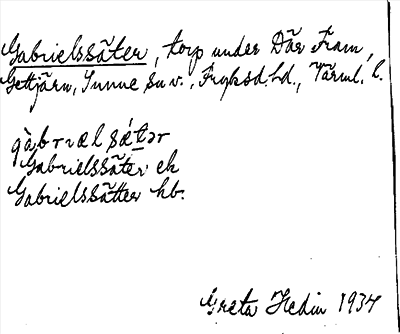 Gabrielssäter, torp under Där Fram,
Gettjärn, Sunne sn., Fryksd. hd., Värml. l.
gàbrɪæl sǽtər
Gabrielssäter ek
Gabrielssätter hb.
Greta Hedin 1934